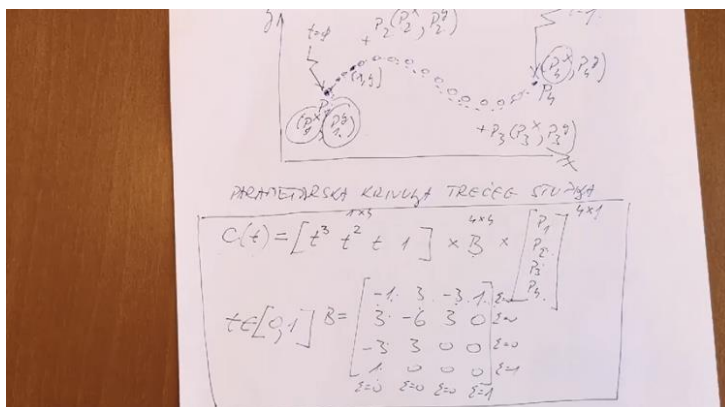 y
t=φ
+ P₂(P₂ˣ, P₂ʸ)
t=1
(x,y)
P₁
(P₁ˣ, P₁ʸ)
(P₄ˣ, P₄ʸ)
P₄
+ P₃(P₃ˣ, P₃ʸ)
x
PARAMETARSKA KRIVULJA TREĆEG STUPNJA
1×4 4×4 4×1
C(t) = [t³ t² t 1] × B × [P₁
P₂
P₃
P₄]
t∈[0,1] B = [-1 3 -3 1 Σ=0
3 -6 3 0 Σ=0
-3 3 0 0 Σ=0
1 0 0 0] Σ=1
Σ=0 Σ=0 Σ=0 Σ=1